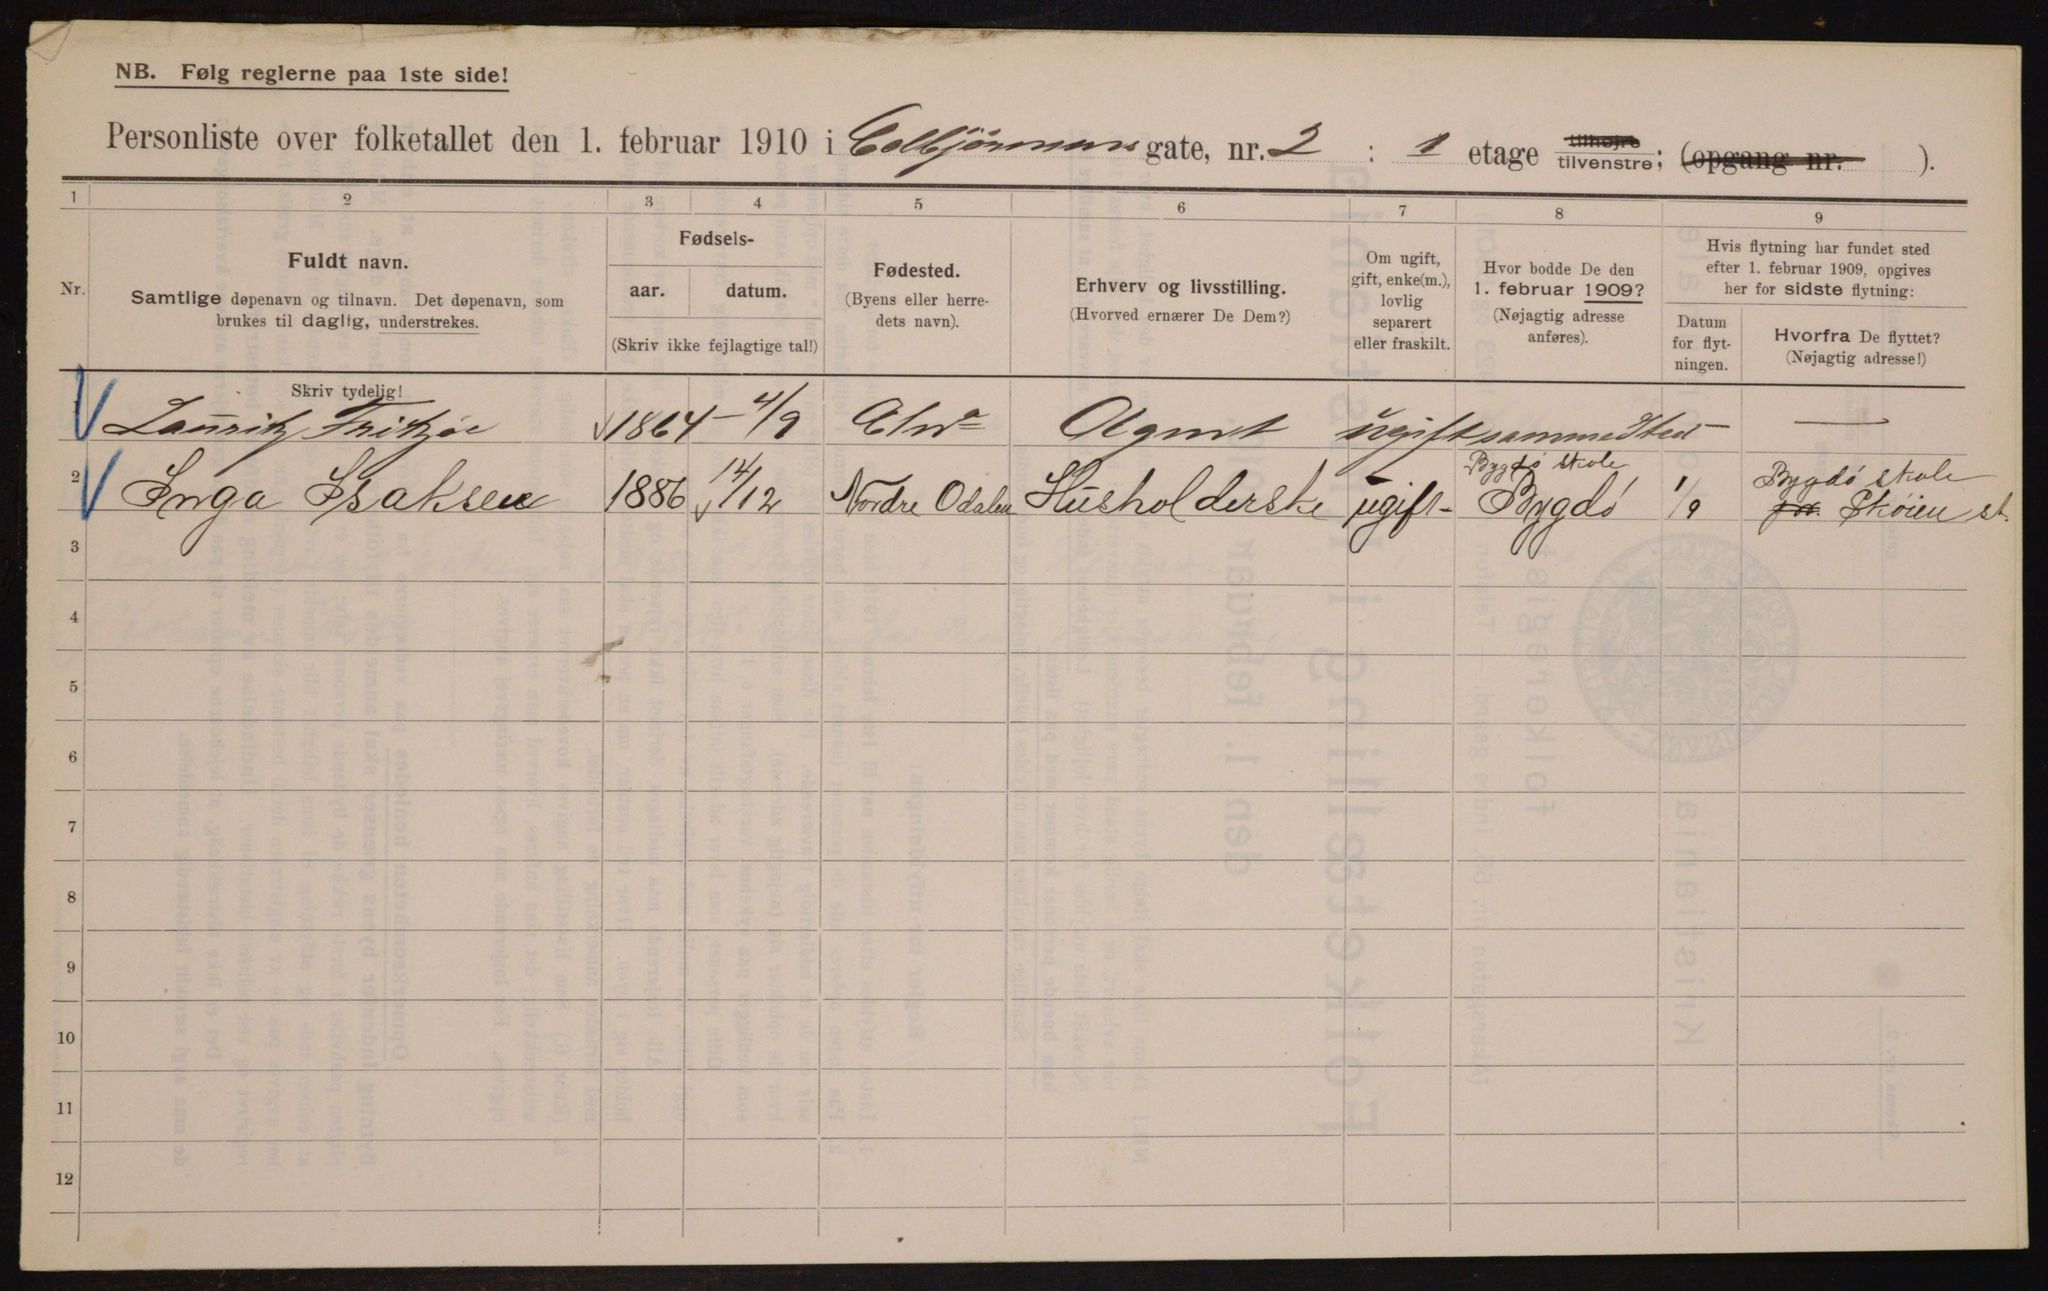 NB. Følg reglerne paa 1ste side!
Personliste over folketallet den 1. februar 1910 i Colbjørnsens gate, nr. 2 : 1 etage tilhøjre tilvenstre; (opgang nr. ).
1 2 3 4 5 6 7 8 9
Nr.
Fuldt navn.
Samtlige døpenavn og tilnavn. Det døpenavn, som
brukes til daglig, understrekes.
Skriv tydelig!
Fødsels-
aar. datum.
(Skriv ikke fejlagtige tal!)
Fødested.
(Byens eller herre-
dets navn).
Erhverv og livsstilling.
(Hvorved ernærer De Dem?)
Om ugift,
gift, enke(m.),
lovlig
separert
eller fraskilt.
Hvor bodde De den
1. februar 1909?
(Nøjagtig adresse
anføres).
Hvis flytning har fundet sted
efter 1. februar 1909, opgives
her for sidste flytning:
Datum
for flyt-
ningen.
Hvorfra De flyttet?
(Nøjagtig adresse!)
Lauritz Fritzøe 1864 4/9 Chra Agent ugift samme Sted —
2 Inga Isaksen 1886 14/12 Nordre Odalen Husholderske ugift Bygdø skole Bygdø 1/9 Bygdø skole Skøien st.
3
4
5
6
7
8
9
10
11
12